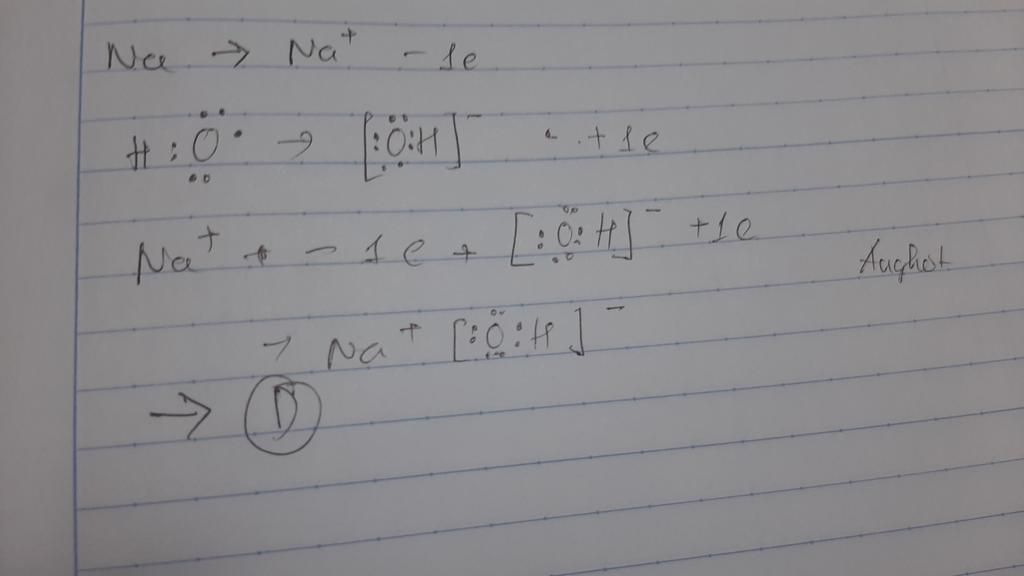 Na → Na⁺ - 1e
H : Ö · → [: Ö : H]⁻ + 1e
Na⁺ + - 1e + [: Ö : H]⁻ + 1e
Aughot
→ Na⁺ [: Ö : H]⁻
→ D